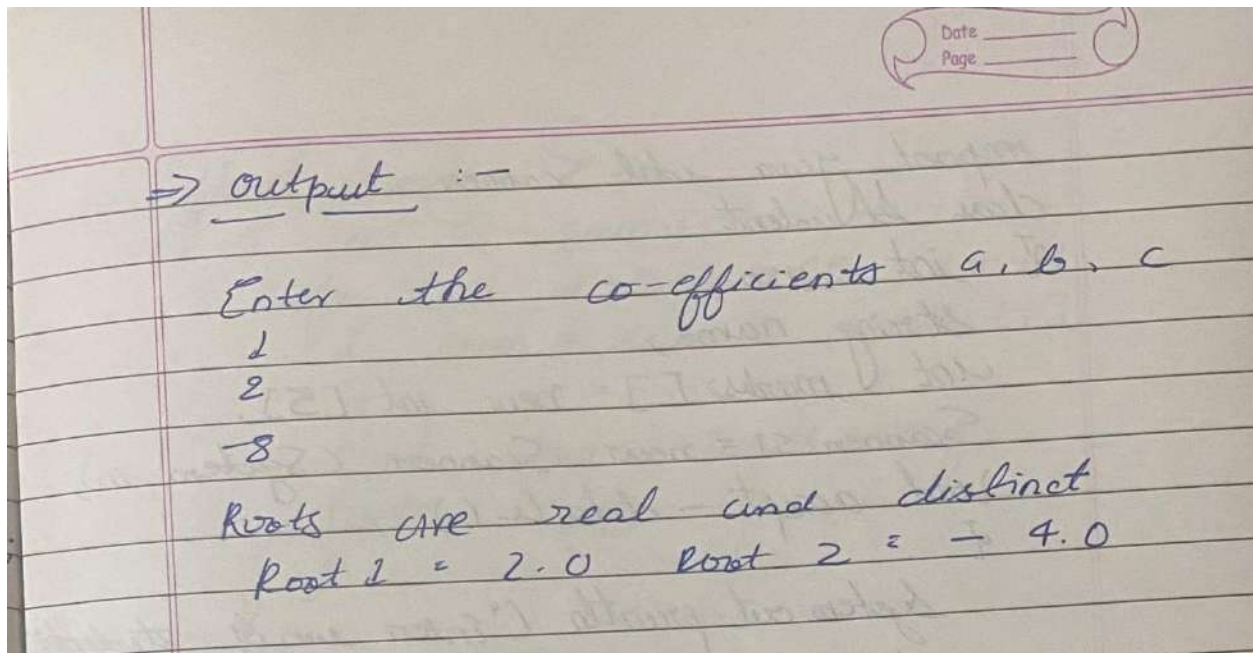 Date
Page
=> output :-
Enter the co-efficients a, b, c
1
2
-8
Roots are real and distinct
Root 1 = 2.0 Root 2 = - 4.0